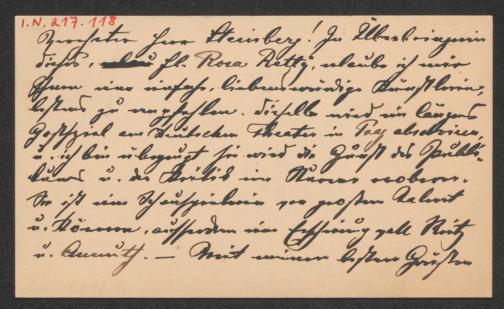 I.N. 217.118
Verehrter Herr Steinberg! In Überbringerin
dieses, Frl. Rosa Retty, erlaube ich mir
Ihnen eine liebenswürdige Künstlerin,
bestens zu empfehlen. Dieselbe wird ein längeres
Gastspiel am Deutschen Theater in absolvieren,
u. ich bin überzeugt sie wird die Gunst des Publi-
kums u. der Kritik im erobern.
Sie ist eine Schauspielerin von großem Talent
u. Können, außerdem eine Erscheinung voll Reitz
u. Anmuth. — Mit meinen besten Grüßen